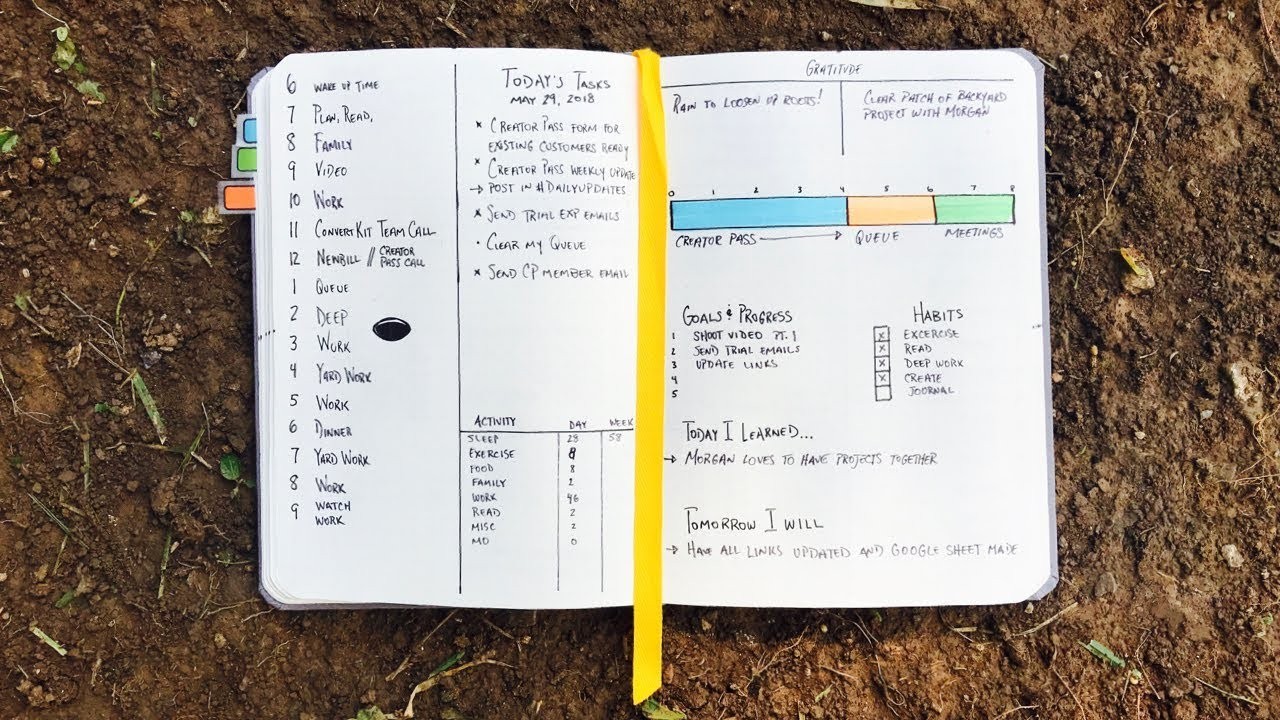 6 WAKE UP TIME
7 PLAN, READ,
8 FAMILY
9 VIDEO
10 WORK
11 CONVERTKIT TEAM CALL
12 NEWBILL // CREATOR
PASS CALL
1 QUEUE
2 DEEP
3 WORK
4 YARD WORK
5 WORK
6 DINNER
7 YARD WORK
8 WORK
9 WATCH
WORK
TODAY'S TASKS
MAY 29, 2018
× CREATOR PASS FORM FOR
EXISTING CUSTOMERS READY
× CREATOR PASS WEEKLY UPDATE
→ POST IN #DAILYUPDATES
× SEND TRIAL EXP EMAILS
· CLEAR MY QUEUE
× SEND CP MEMBER EMAIL
ACTIVITY DAY WEEK
SLEEP 28 58
EXERCISE 8
FOOD 8
FAMILY 2
WORK 46
READ 2
MISC 2
MO 0
GRATITUDE
RAIN TO LOOSEN UP ROOTS!
CLEAR PATCH OF BACKYARD
PROJECT WITH MORGAN
0 1 2 3 4 5 6 7 8
CREATOR PASS → QUEUE MEETINGS
GOALS & PROGRESS
1 SHOOT VIDEO PT. 1
2 SEND TRIAL EMAILS
3 UPDATE LINKS
4
5
HABITS
x EXCERCISE
x READ
x DEEP WORK
x CREATE
JOURNAL
TODAY I LEARNED...
→ MORGAN LOVES TO HAVE PROJECTS TOGETHER
TOMORROW I WILL
→ HAVE ALL LINKS UPDATED AND GOOGLE SHEET MADE